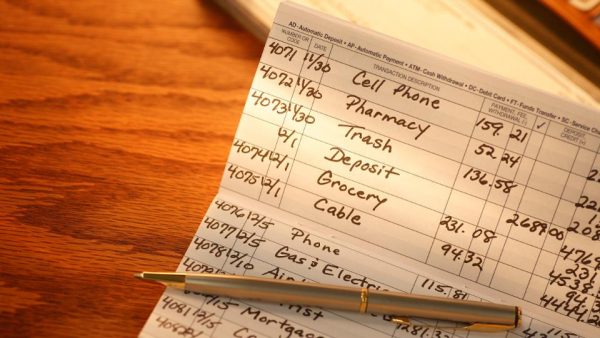 AD-Automatic Deposit • AP-Automatic Payment • ATM-Cash Withdrawal • DC-Debit Card • FT-Funds Transfer • SC-Service
NUMBER OR CODE DATE TRANSACTION DESCRIPTION PAYMENT, FEE, WITHDRAWAL (-) ✓ DEPOSIT, CREDIT (+)
4071 11/30 Cell Phone 159.21
4072 11/30 Pharmacy 52.24
4073 11/30 Trash 136.58
12/1 Deposit 2689.00
4074 12/1 Grocery 231.08 4769
4075 12/1 Cable 94.32 231
4538
94.3
4444
4076 12/5 Phone
4077 12/5 Gas & Electric 115.81
4078 12/10
4081 12/15 Mortgage 1281.33
4082